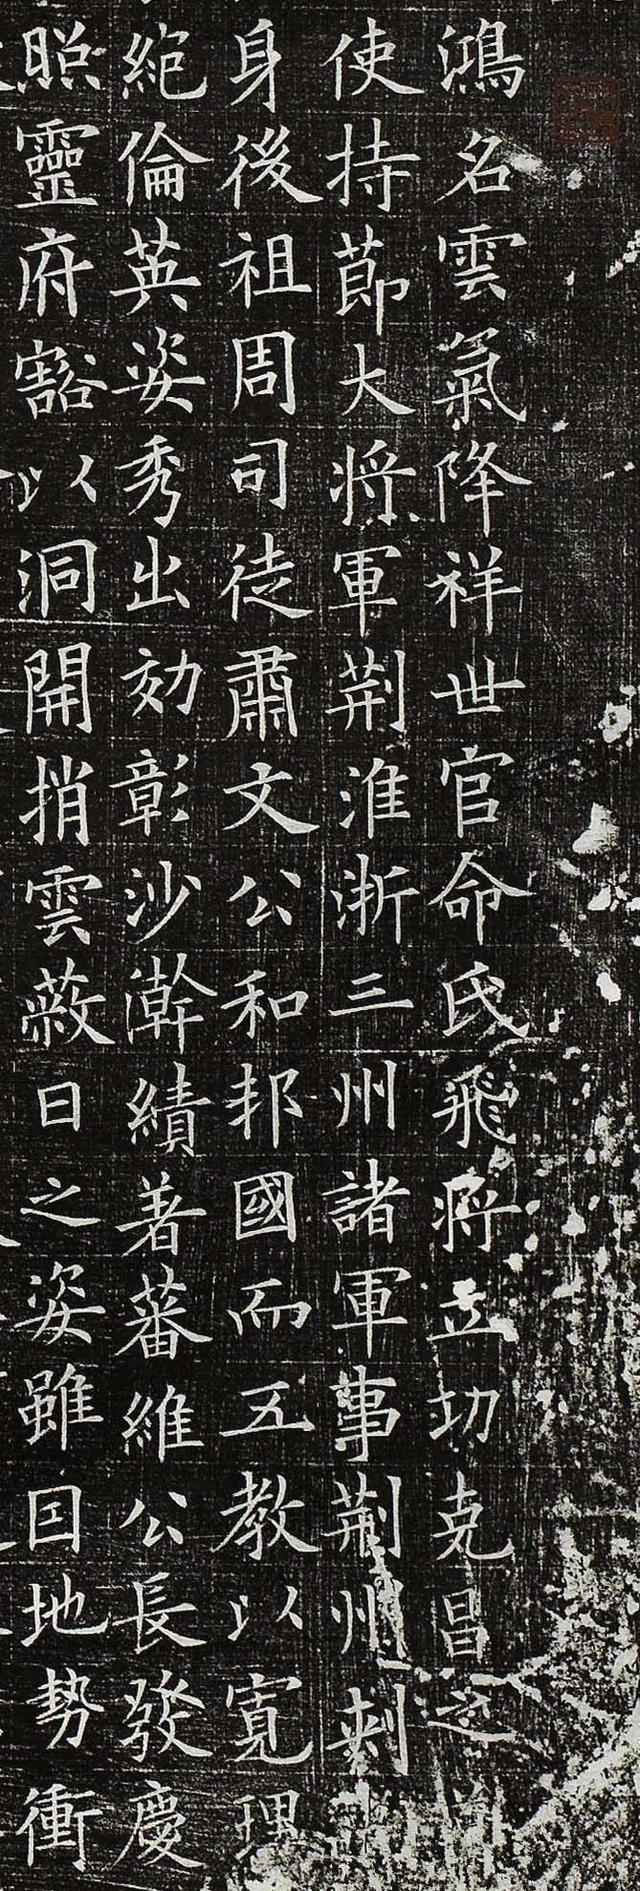 鴻名雲氣降祥世官命氏飛將立功克昌之
使持莭大將軍荆淮浙三州諸軍事荆州刺
身後祖周司徒肅文公和邦國而五教以寛理
絕倫英姿秀出効彰沙澣績著蕃維公長發慶
照靈府豁以洞開捎雲蔽日之姿雖因地勢衝